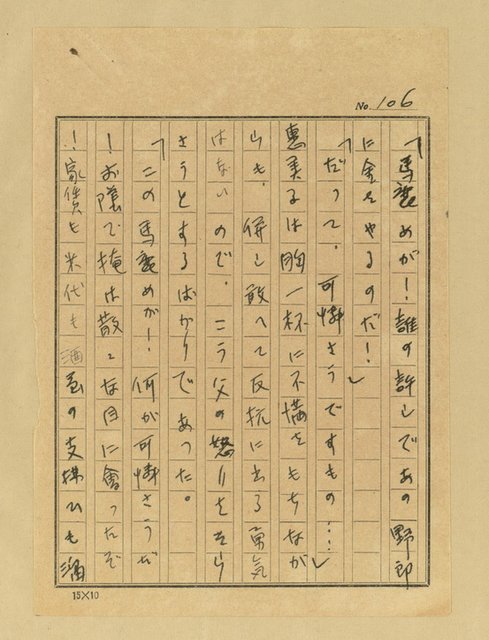 No. 106
「馬鹿めが！誰の許しであの野郎
に金をやるのだ！
「だって、可憐さうですもの…」
恵美子は胸一杯に不満をもちなが
らも、併し敢へて反抗に出る勇気
はないので、こう父の怒りをそら
さうとするばかりであった。
「この馬鹿めが！何が可憐さうだ
！お隠で俺は散々な目に會ったぞ
！家賃も米代も酒屋の支拂ひも酒
15×10